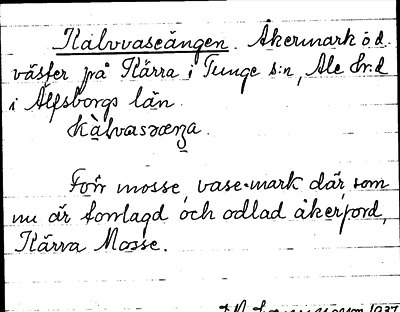 Kalvvaseängen. Åkermark o d.
väster på Kärra i Tunge s:n, Ale hr:d
i Älfsborgs län.
Förr mosse, vase-mark där, som
nu är torrlagd och odlad åkerjord,
Kärra Mosse.
1937